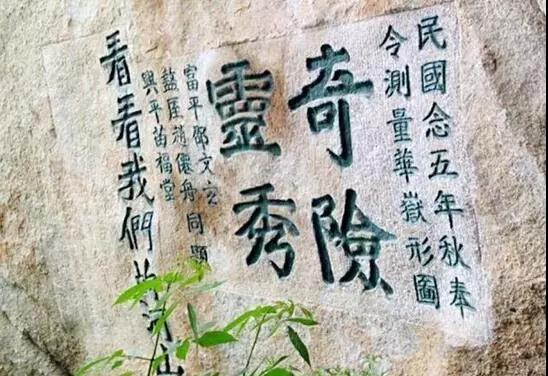 民國念五年秋奉
令測量華嶽形圖
奇險
靈秀
富平鄧文
盩厔趙儼舟同題
興平苗福堂
看看我們的河山